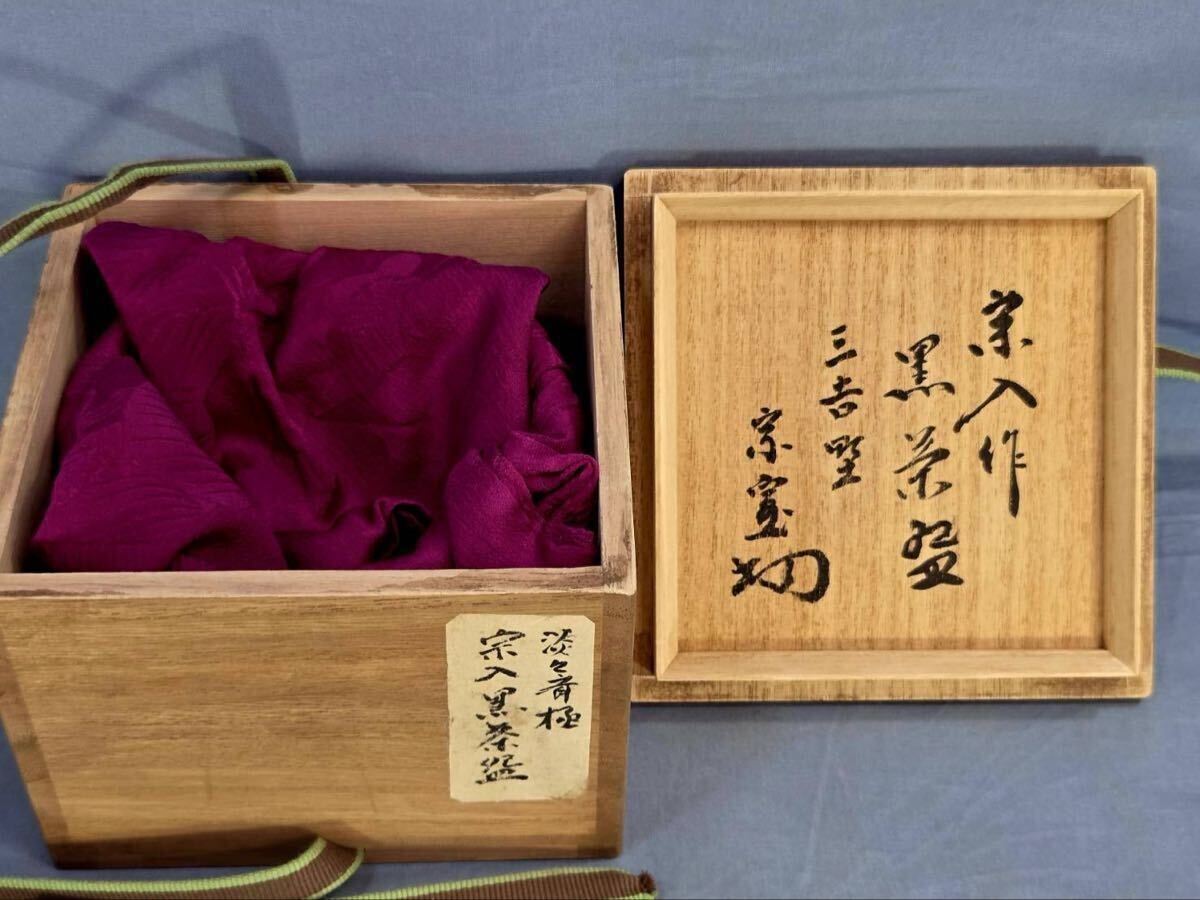 宗入作
黒茶盌
三吉野
宗室
淡々斎極
宗入黒茶盌